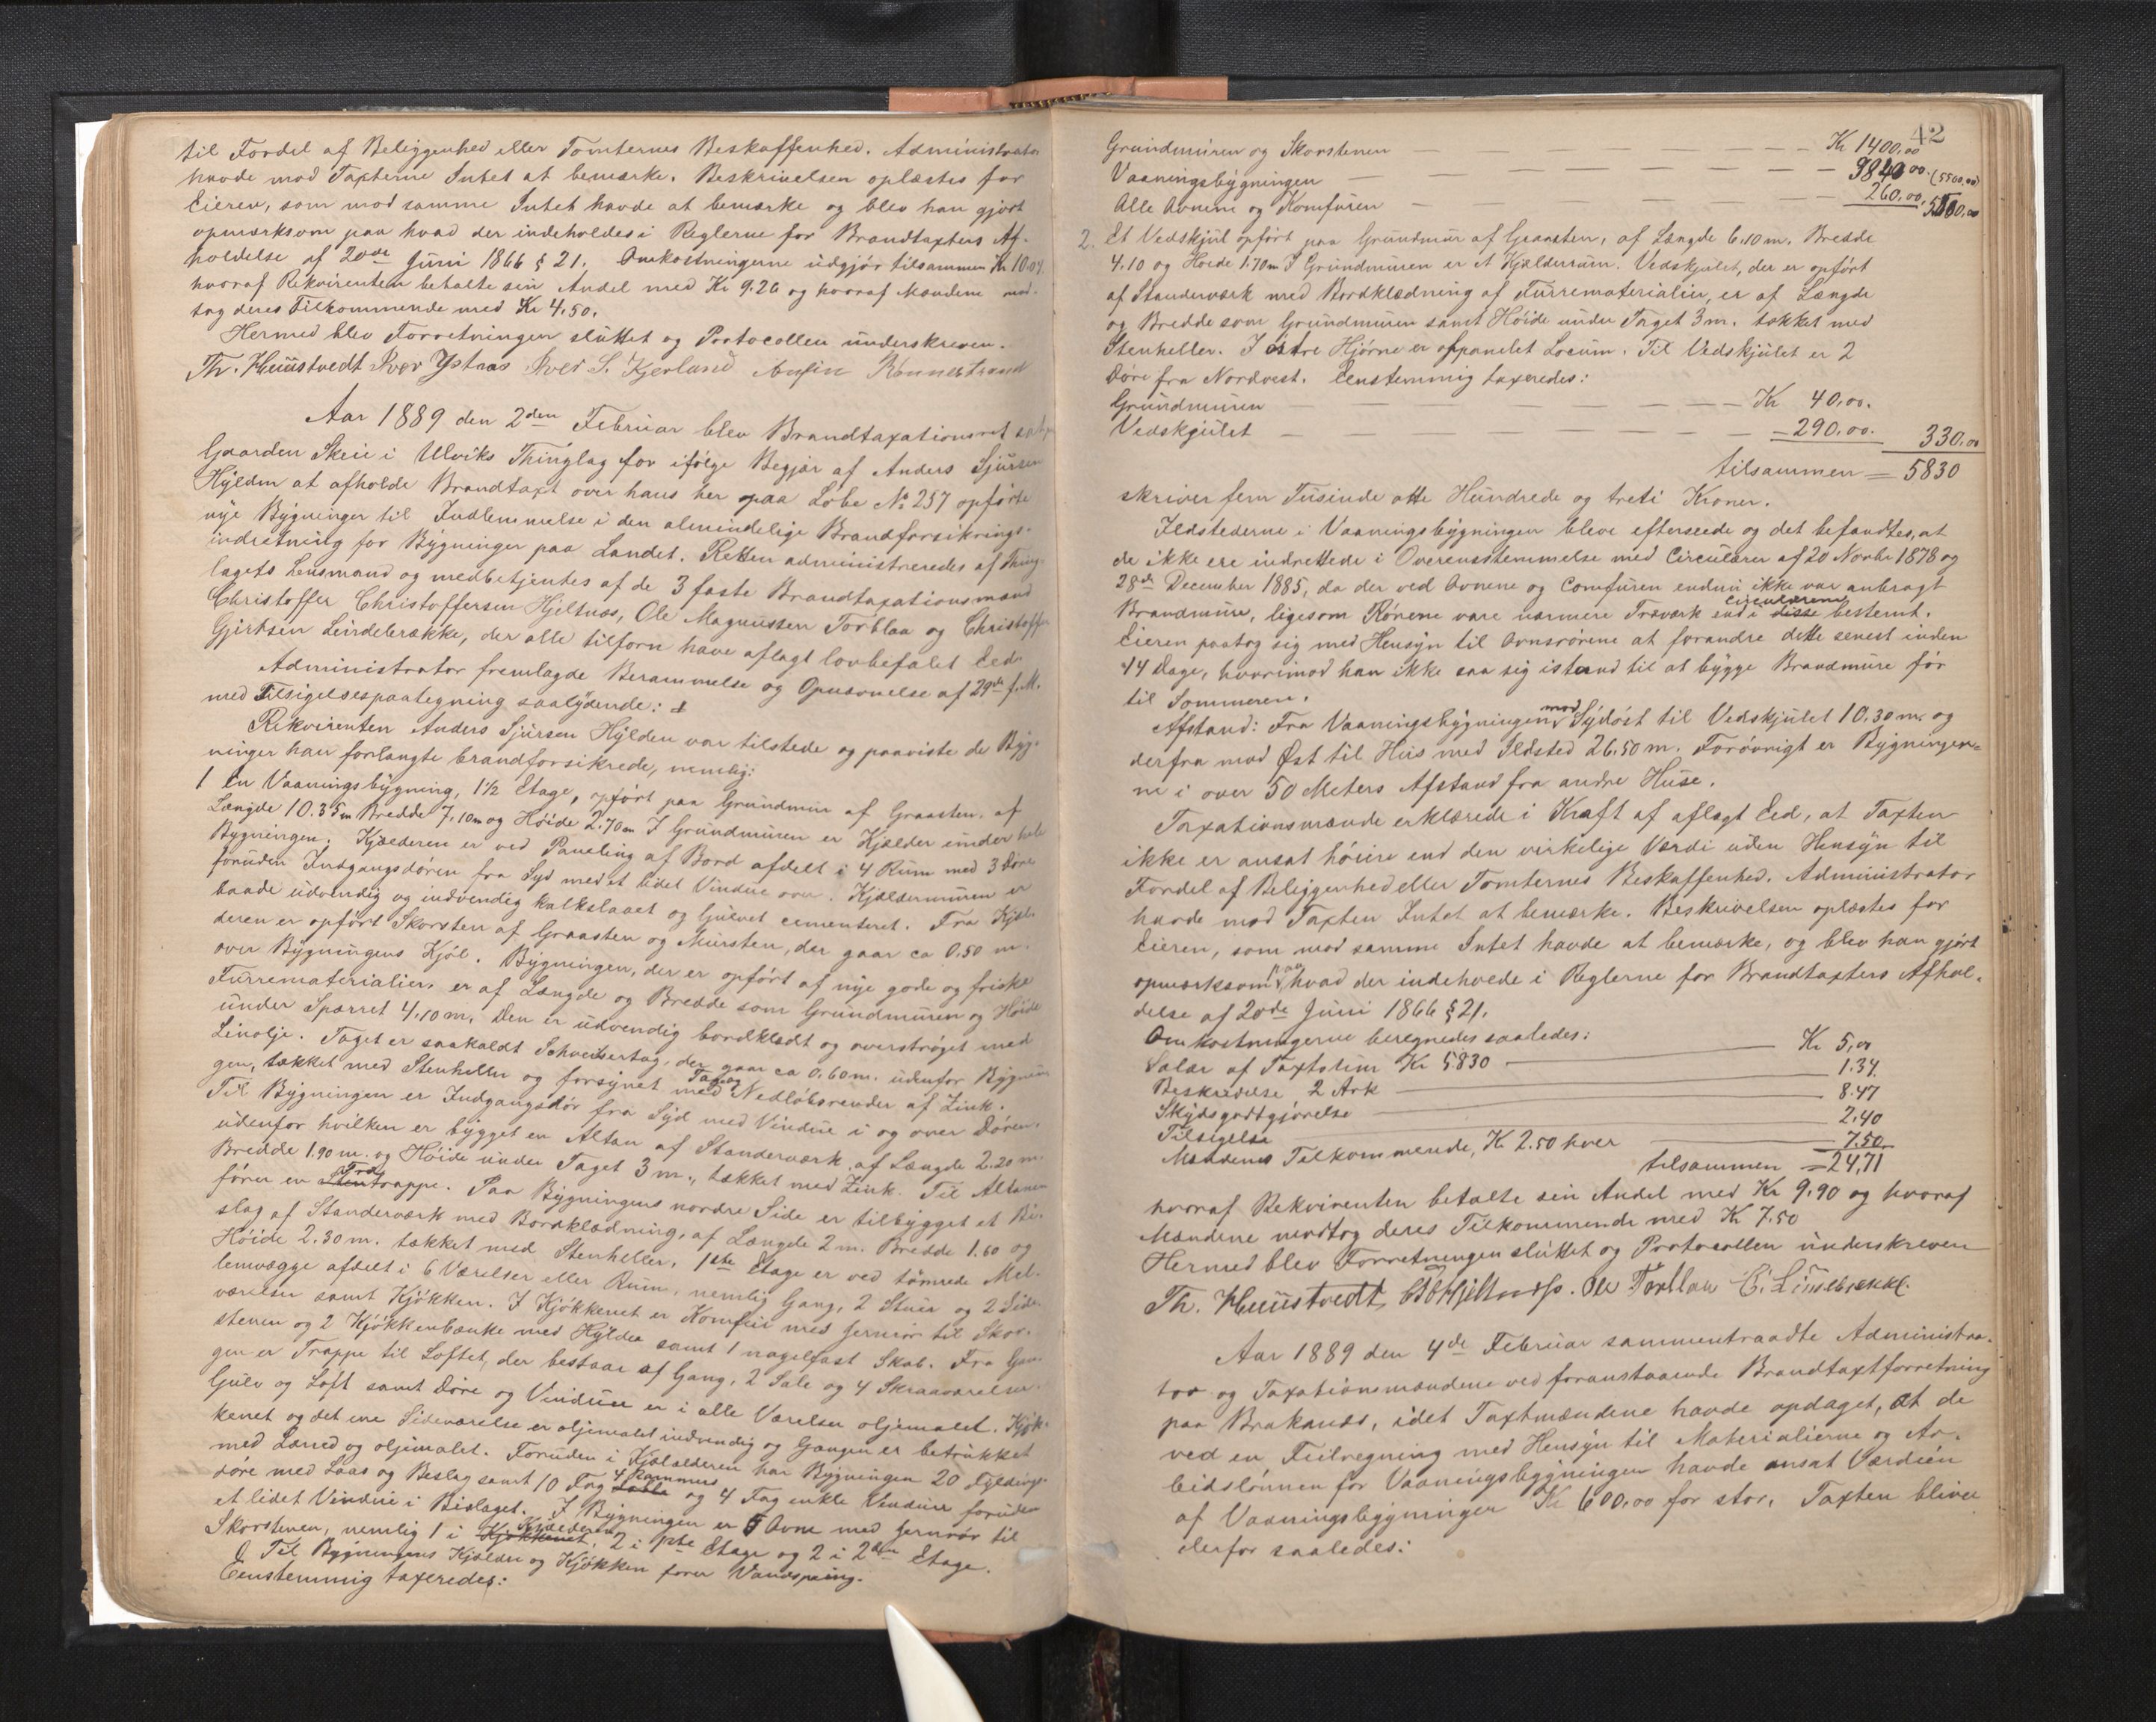 til Fordel af Beliggenhed eller Tomternes Beskaffenhed. Administrator
havde mod Taxterne Intet at bemærke. Beskrivelsen oplæstes for
Eieren, som mod samme Intet havde at bemærke og blev han gjort
opmærksom paa hvad der indeholdes i Reglerne for Brandtaxters Af-
holdelse af 20de Juni 1866 § 21. Omkostningerne udgjør tilsammen Kr 10.04
hvoraf Rekvirenten betalte sin Andel med Kr 9.26 og hvoraf Mændene mod-
tog deres Tilkommende med Kr 4.50.
Hermed blev Forretningen sluttet og Protocollen underskreven.
Th. Heuistvedt Iver Ystnæs Iver S. Kjerland Anfin Rønnestrand
Aar 1889 den 2den Februar blev Brandtaxationsret sat paa
Gaarden Skeie i Ulviks Thinglag for ifølge Begjær af Anders Sjursen
Hylden at afholde Brandtaxt over hans her paa Løbe No 257 opførte
nye Bygninger til Indlemmelse i den almindelige Brandforsikrings-
indretning for Bygninger paa Landet. Retten administreredes af Thing-
lagets Lensmand og medbetjentes af de 3 faste Brandtaxationsmænd
Christoffer Christoffersen Hjeltnæs, Ole Magnussen Torblaa og Christoffer
Girtsen Lindebrække, der alle tilforn have aflagt lovbefalet Eed.
Administrator fremlagde Berammelse og Opnævnelse af 29de f. M.
med Tilsigelsespaategning saalydende:
Rekvirenten Anders Sjursen Hylden var tilstede og paaviste de Byg-
ninger han forlangte brandforsikrede, nemlig:
1 En Vaaningsbygning, 1½ Etage, opført paa Grundmur af Graasten, af
Længde 10.35m Bredde 7.10m og Høide 2.70m I Grundmuren er Kjælder under hele
Bygningen. Kjælderen er ved Paneling af Bord afdelt i 4 Rum med 3 Døre
foruden Indgangsdøren fra Syd med et lidet Vindue over. Kjældermuren er
baade udvendig og indvendig kalkslaaet og Gulvet cementeret. Fra Kjæl-
deren er opført Skorsten af Graasten og Mursten, der gaar ca 0.50 m.
over Bygningens Kjøl. Bygningen, der er opført af nye gode og friske
Furrematerialier, er af Længde og Bredde som Grundmuren og Høide
under Spærret 4.10 m. Den er udvendig bordklædt og overstrøget med
Linolje. Taget er saakaldt Schveitsertag, der gaar ca 0.60 m. udenfor Bygnin-
gen, tækket med Stenheller og forsynet med Tag og Nedløbsrender af Zink.
Til Bygningen er Indgangsdør fra Syd med Vindue i og over Døren,
udenfor hvilken er bygget en Altan af Standerværk af Længde 2.20 m.
Bredde 1.90 m. og Høide under Taget 3 m., tækket med Zink. Til Altanen
fører en Stentrappe Træ. Paa Bygningens nordre Side er tilbygget et Bi-
slag af Standerværk med Bordklædning, af Længde 2 m. Bredde 1.60 og
Høide 2.30 m. tækket med Stenheller. 1ste Etage er ved tømrede Mel-
lemvægge afdelt i 6 Værelser eller Rum, nemlig Gang, 2 Stuer og 2 Side-
værelser samt Kjøkken. I Kjøkkenet er Komfur med Jernrør til Skor-
stenen og 2 Kjøkkenbænke med Hylder samt 1 nagelfast Skab. Fra Gan-
gen er Trappe til Loftet, der bestaar af Gang, 2 Sale og 4 Skraaværelser.
Gulv og Loft samt Døre og Vinduer er i alle Værelser oljemalet. Kjøk-
kenet og det ene Sideværelse er oljemalet indvendig og Gangen er betrukket
med Lærred og oljemalet. Foruden i Kjælderen har Bygningen 20 Fyldings-
døre med Laas og Beslag samt 10 Fag 4 Rammers og 4 Fag enkle Vinduer foruden
et lidet Vindue i Bislaget. I Bygningen er 5 Ovne med Jernrør til
Skorstenen, nemlig 1 i Kjøkkenet Kjælderen, 2 i 1ste Etage og 2 i 2den Etage.
Til Bygningens Kjælder og Kjøkken fører Vandspring.
Eenstemmig taxeredes:
42
Grundmuren og Skorstenen — Kr 1400,00
Vaaningsbygningen — 3840,00. (5500,00)
Alle Ovnene og Komfuren — 260,00. 5500,00
2. Et Vedskjul opført paa Grundmur af Graasten, af Længde 6.10 m. Bredde
4.10 og Høide 1.70m I Grundmuren er et Kjælderrum. Vedskjulet, der er opført
af Standerværk med Bordklædning af Furrematerialier, er af Længde
og Bredde som Grundmuren samt Høide under Taget 3 m. tækket med
Stenheller. I østre Hjørne er afpanelet Locum. Til Vedskjulet er 2
Døre fra Nordvest. Eenstemmig taxeredes:
Grundmuren — Kr 40,00.
Vedskjulet — 290,00. 330,00
tilsammen = 5830
skriver fem Tusinde otte Hundrede og treti Kroner.
Ildstederne i Vaaningsbygningen bleve efterseede og det befandtes, at
de ikke ere indrettede i Overensstemmelse med Circulærer af 20 Novbr 1878 og
28de December 1885, da der ved Ovnene og Comfuren endnu ikke var anbragt
Brandmure, ligesom Rørene vare nærmere Træværk end i disse Circulærerne bestemt.
Eieren paatog sig med Hensyn til Ovnsrørene at forandre dette senest inden
14 Dage, hvorimod han ikke saa sig istand til at bygge Brandmure før
til Sommeren.
Afstand: Fra Vaaningsbygningen mod Sydøst til Vedskjulet 10.30 m. og
derfra mod Øst til Hus med Ildsted 26.50 m. Forøvrigt er Bygninger-
ne i over 50 Meters Afstand fra andre Huse.
Taxationsmænde erklærede i Kraft af aflagt Eed, at Taxten
ikke er ansat høiere end den virkelige Værdi uden Hensyn til
Fordel af Beliggenhed eller Tomternes Beskaffenhed. Administrator
havde mod Taxten Intet at bemærke. Beskrivelsen oplæstes for
Eieren, som mod samme Intet havde at bemærke, og blev han gjort
opmærksom paa hvad der indeholdes i Reglerne for Brandtaxters Afhol-
delse af 20de Juni 1866 § 21.
Omkostningerne beregnedes saaledes:
Salær af Taxtsum Kr 5830 — Kr 5,00
Beskrivelse 2 Ark — 1.34.
Skydsgodtgjørelse — 8.47
Tilsigelse — 2.40
Mændenes Tilkommende, Kr 2.50 hver — 7.50
tilsammen = 24,71
hvoraf Rekvirenten betalte sin Andel med Kr 9.90 og hvoraf
Mændene modtog deres Tilkommende med Kr 7.50
Hermed blev Forretningen sluttet og Protocollen underskreven
Th. Heuistvedt, Ole Torblaa C. Lindebrække.
Aar 1889 den 4de Februar sammentraadte Administra-
tor og Taxationsmændene ved foranstaaende Brandtaxtforretning
paa Brakanæs, idet Taxtmændene havde opdaget, at de
ved en Feilregning med Hensyn til Materialierne og Ar-
beidslønnen for Vaaningsbygningen havde ansat Værdien
af Vaaningsbygningen Kr 600,00 for stor. Taxten bliver
derfor saaledes: